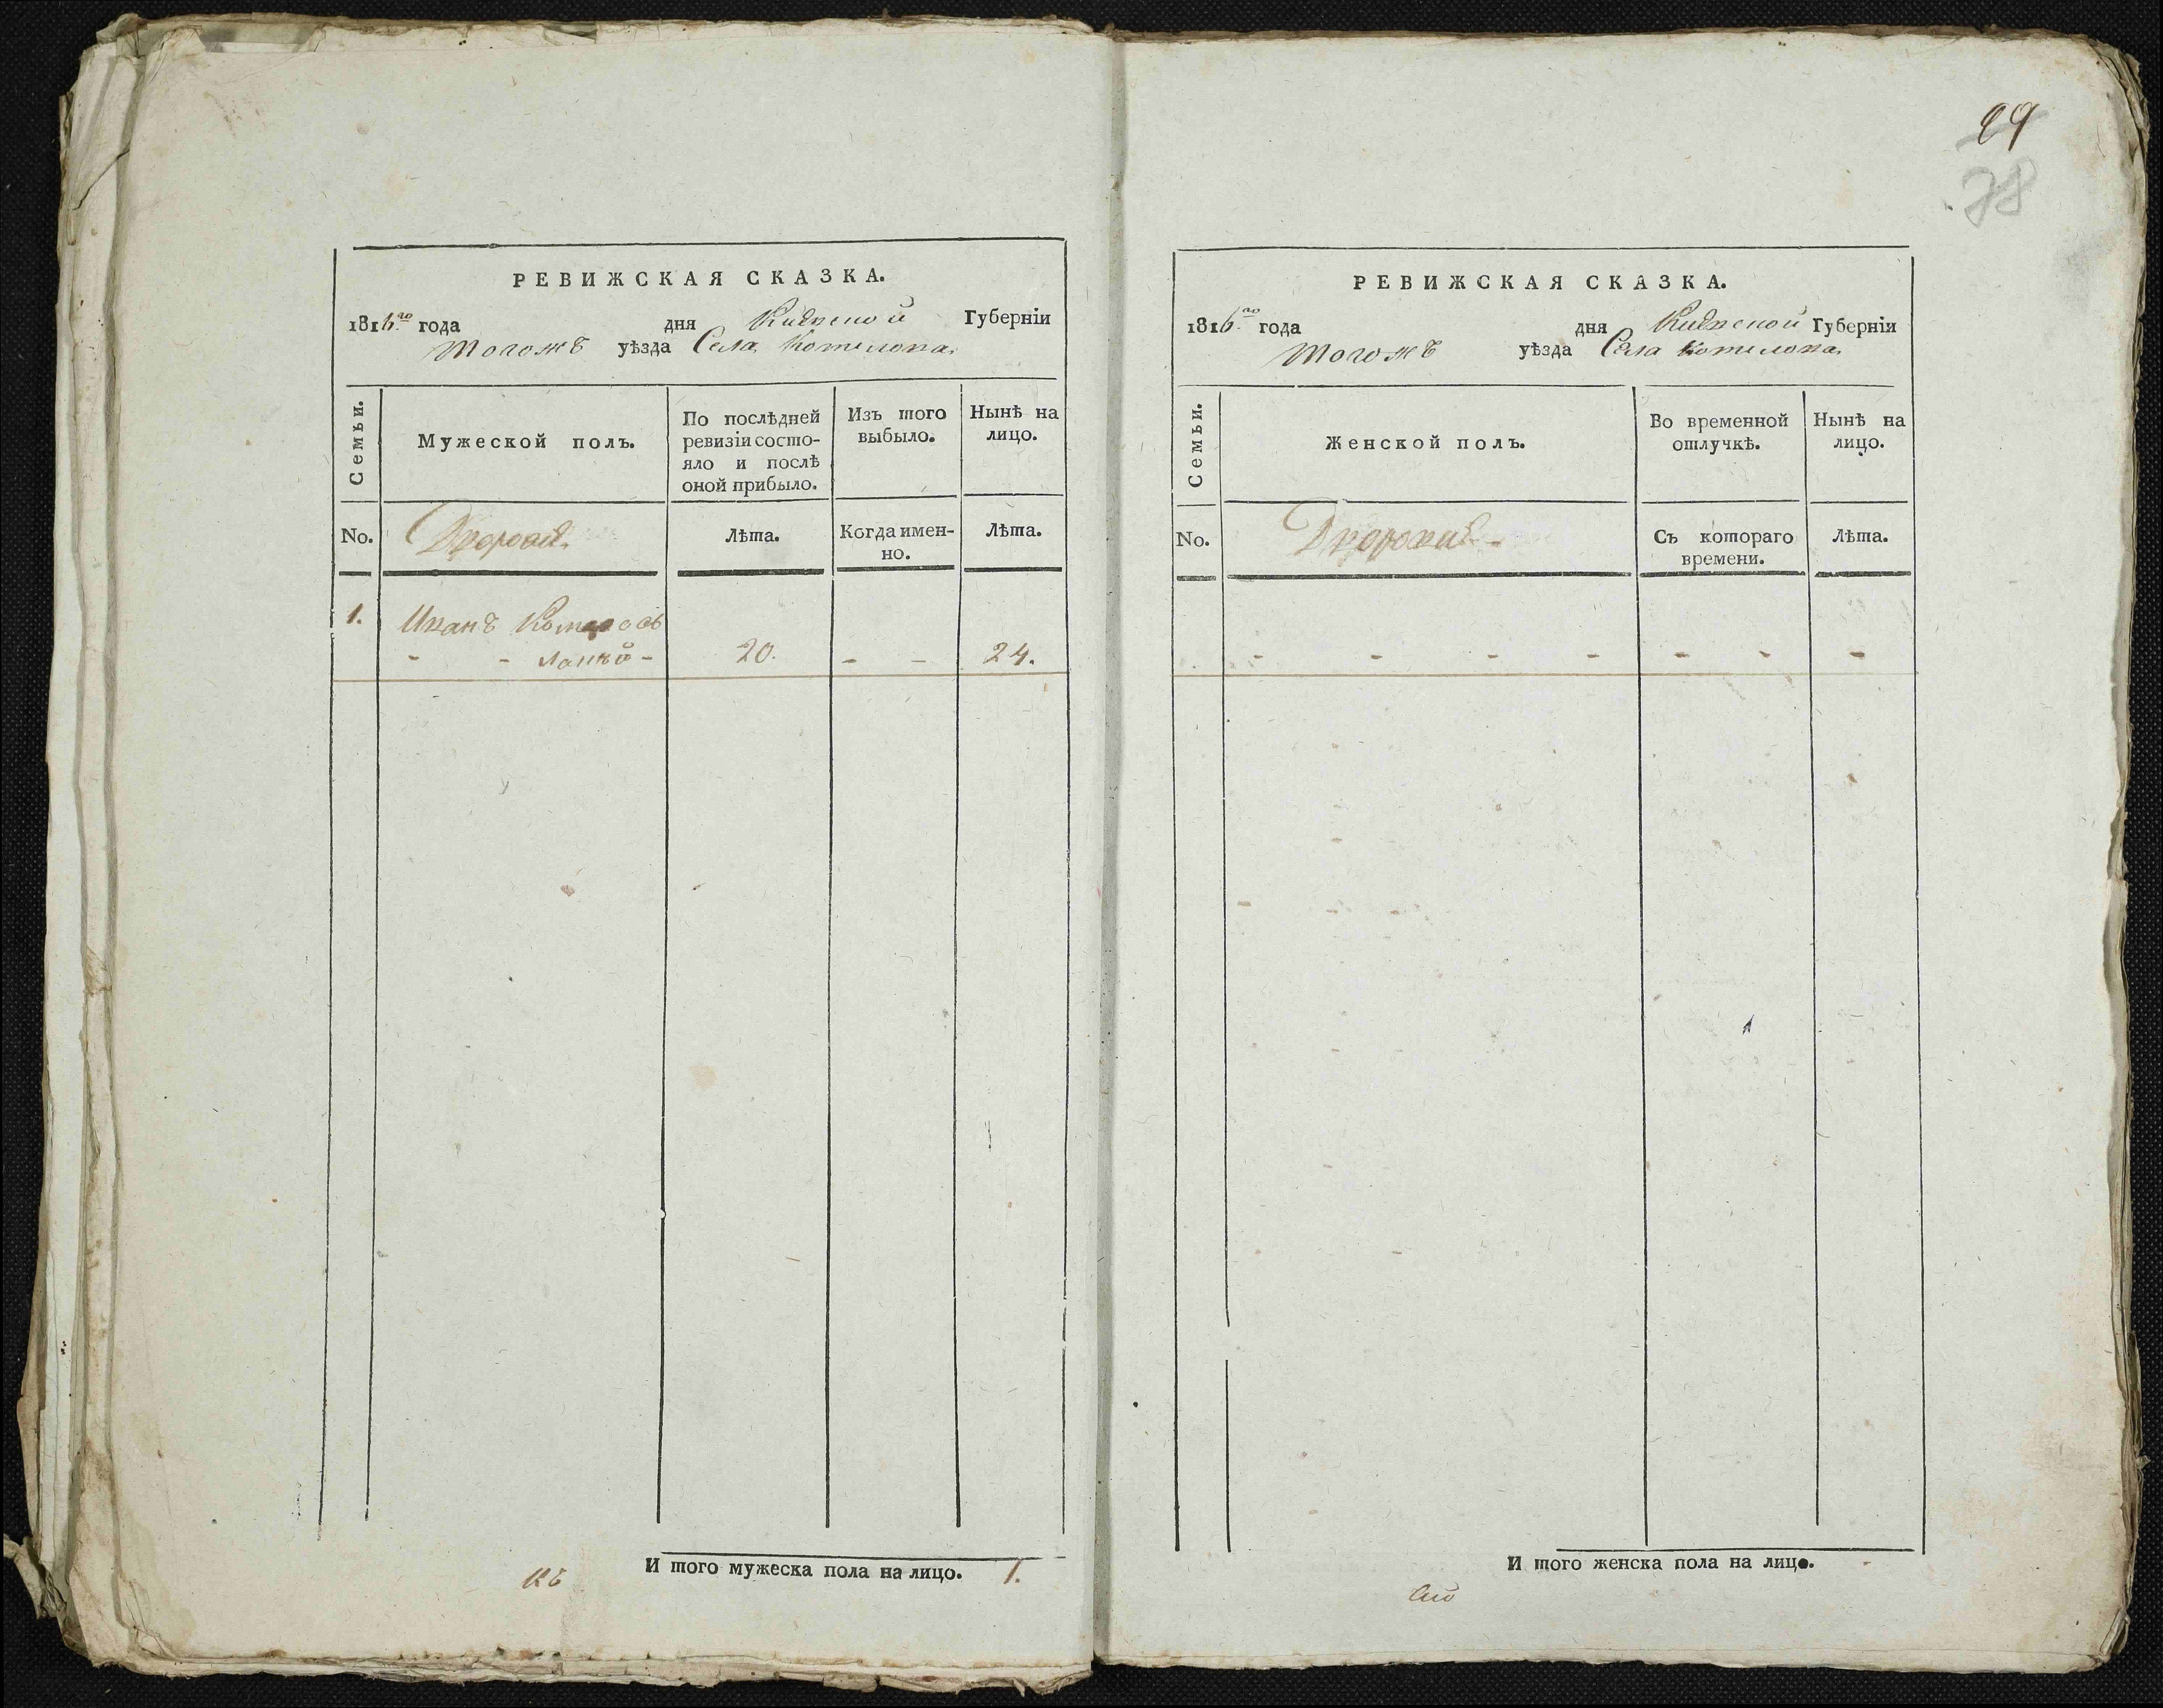 РЕВИЖСКАЯ СКАЗКА.
1816.го года дня Киевской Губерніи
тогожъ уѣзда Села Котелова.
Семьи.
Мужеской полъ.
По послѣдней ревизіи состо-
яло и послѣ
оной прибыло.
Изъ того
выбыло.
Нынѣ на
лицо.
No.
Дворовой
Лѣта.
Когда имен-
но.
Лѣта.
1. Иванъ
20. - - 24.
И того мужеска пола на лицо. 1.
29
78
РЕВИЖСКАЯ СКАЗКА.
1816.го года дня Киевской Губерніи
тогожъ уѣзда Села Котелова.
Семьи.
Женской полъ.
Во временной
отлучкѣ.
Нынѣ на
лицо.
No.
Съ котораго
времени.
Лѣта.
- - - - - - -
И того женска пола на лицо. -